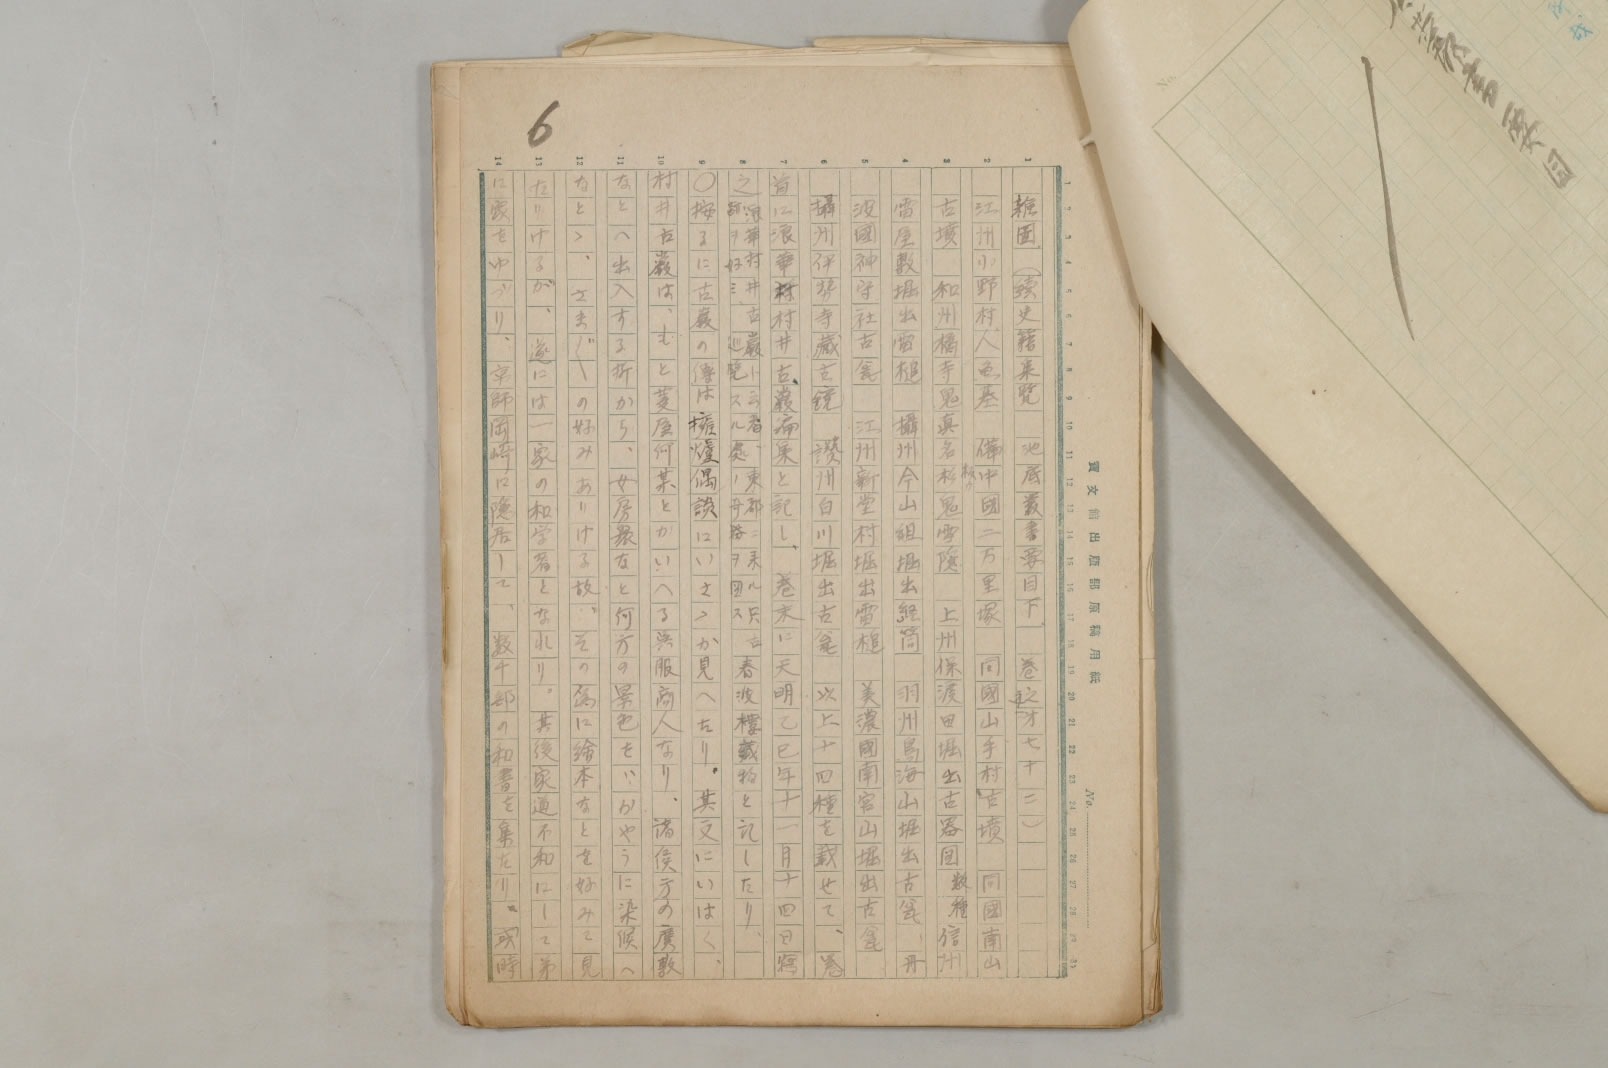 6
寶文館出版部原稿用紙
No.
雜圖（續史籍集覽 池底叢書要目下 巻之才七十二）
江州小野村人魚墓 備中國二万里塚 同國山手村古墳 同國南山
古墳 和州橘寺鬼真名板鬼雪隠 上州保渡田堀出古器図数種信州
雷屋敷堀出雷槌 攝州今山組堀出経筒 羽州鳥海山堀出古瓮、丹
波國神守社古瓮 江州新堂村堀出雷槌 美濃國南宮山堀出古瓮
攝州伊勢寺蔵古鏡 讃州白川堀出古瓮 以上十四種を載せて、巻
首に浪華村井古巌痛臬と記し、巻末に天明乙巳年十一月十四日写
之 浪華村井古巌ト云者、東都ニ来ル 跡ヲ好ミ巡覧スル処ノ奇器ヲ図ス 春波樓蔵物と記したり、
〇按るに古巌の傳は擁爐偶談にいさゝか見へたり。其文にいはく、
村井古巌は、もと菱屋何某とかいへる呉服商人なり、諸侯方の廣敷
なとへ出入する折から、女房衆なと何方の景色をいかやうに染候へ
なとゝ、さま〴〵の好みありける故、その為に繪本なとを好みて見
たりけるが、遂には一家の和学者となれり。其後家道不和にして弟
に家をゆづり、京師岡崎に隠居して、数千部の和書を集たり。或時